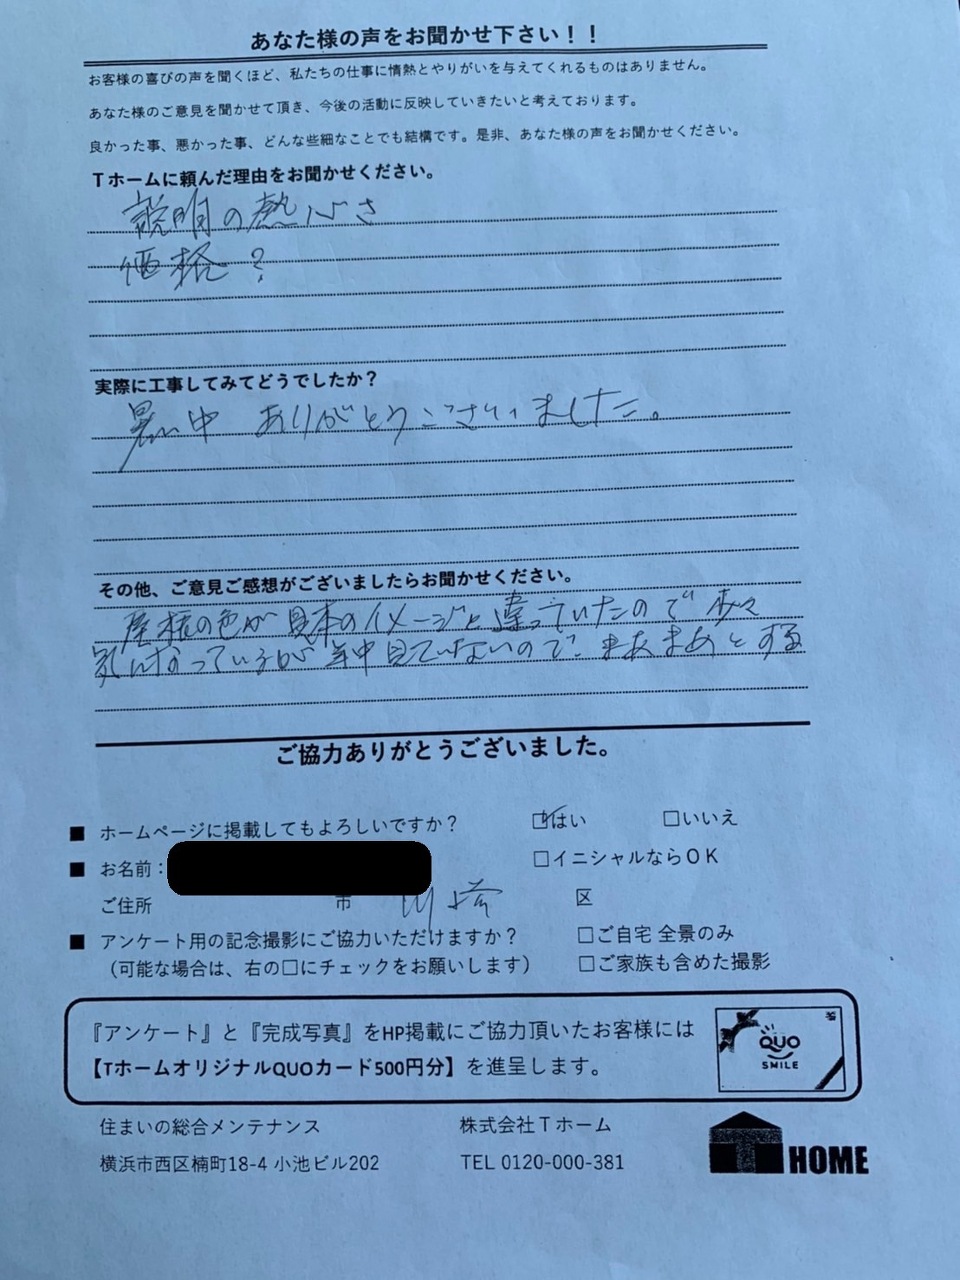 あなた様の声をお聞かせ下さい！！
お客様の喜びの声を聞くほど、私たちの仕事に情熱とやりがいを与えてくれるものはありません。
あなた様のご意見を聞かせて頂き、今後の活動に反映していきたいと考えております。
良かった事、悪かった事、どんな些細なことでも結構です。是非、あなた様の声をお聞かせください。
Tホームに頼んだ理由をお聞かせください。
説明の熱心さ
価格？
実際に工事してみてどうでしたか？
暑い中 ありがとうございました。
その他、ご意見ご感想がございましたらお聞かせください。
屋根の色が見本のイメージと違っていたので 少々
気になっているが 年中見ていないので、まあまあとする
ご協力ありがとうございました。
■ ホームページに掲載してもよろしいですか？ ☑はい □いいえ
■ お名前： □イニシャルならOK
ご住所 市 川崎 区
■ アンケート用の記念撮影にご協力いただけますか？ □ご自宅 全景のみ
（可能な場合は、右の□にチェックをお願いします） □ご家族も含めた撮影
『アンケート』と『完成写真』をHP掲載にご協力頂いたお客様には
【TホームオリジナルQUOカード500円分】を進呈します。
QUO
SMILE
住まいの総合メンテナンス 株式会社Tホーム
横浜市西区楠町18-4 小池ビル202 TEL 0120-000-381
T HOME